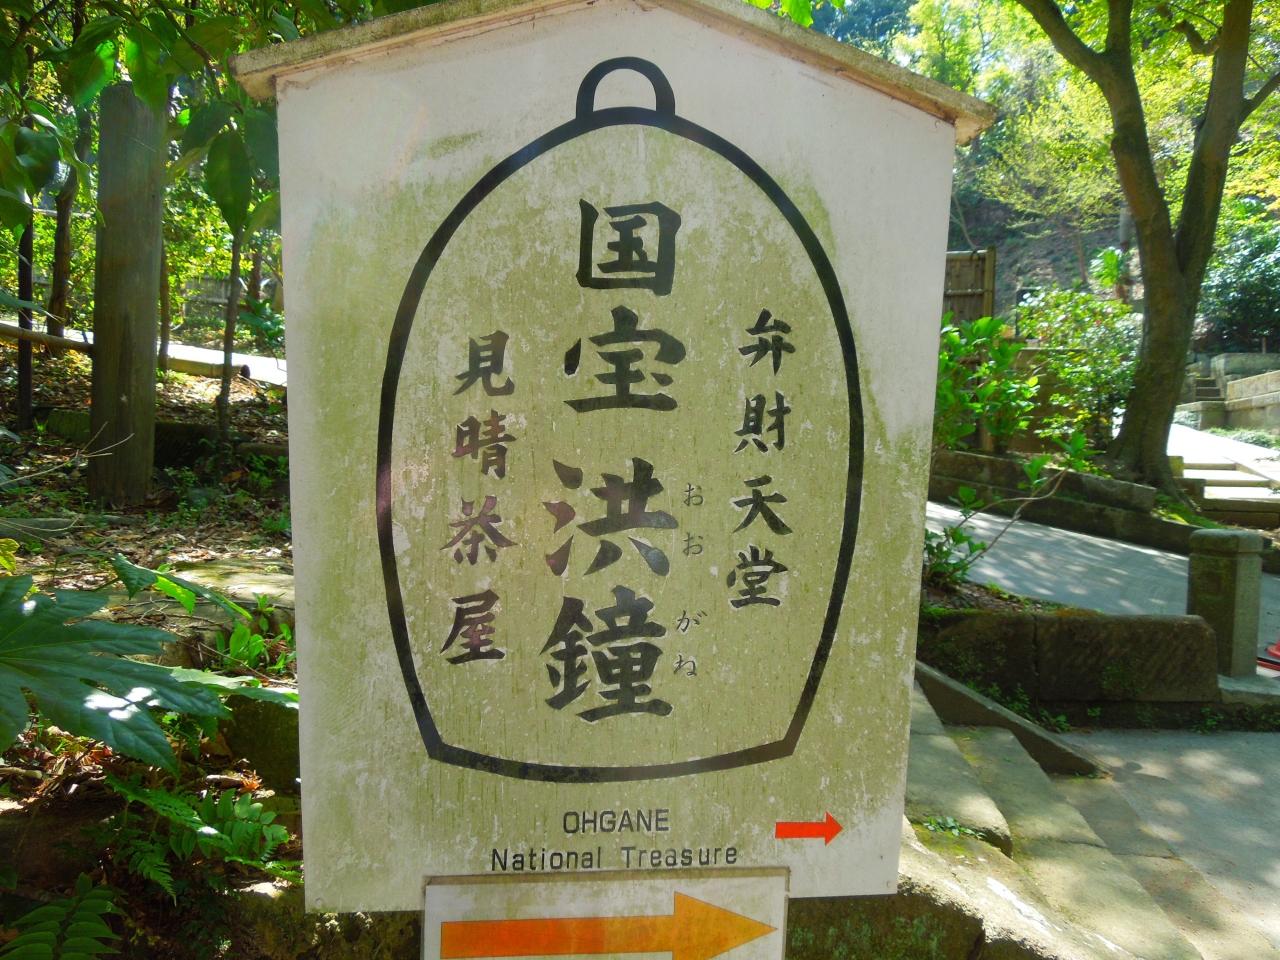 弁財天堂
国宝洪鐘
おおがね
見晴茶屋
OHGANE
National Treasure